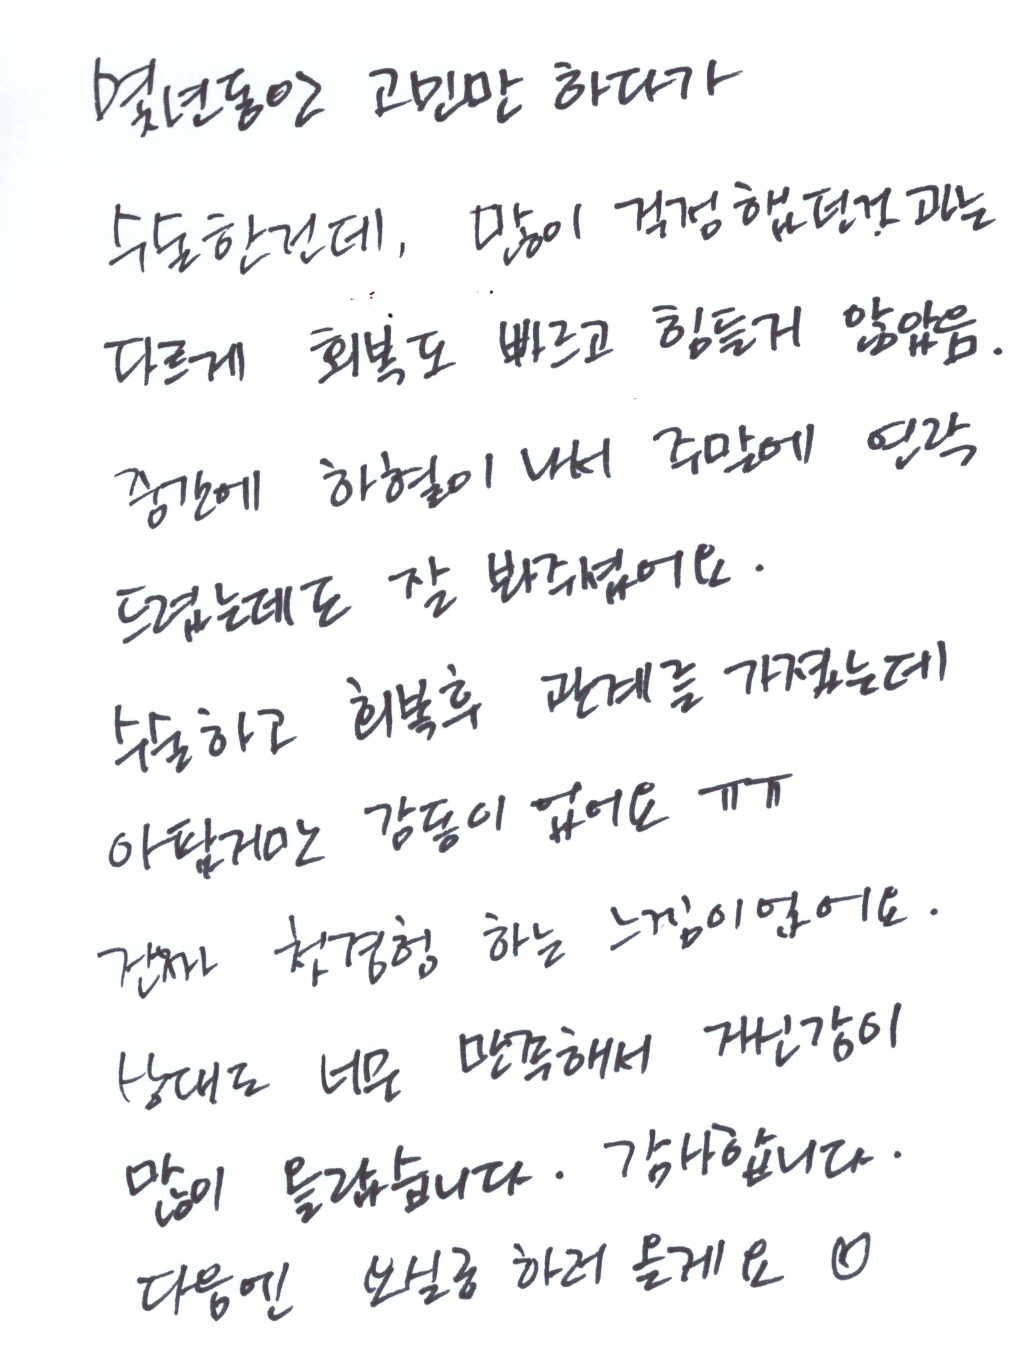 몇년동안 고민만 하다가
수술한건데, 많이 걱정했던것과는
다르게 회복도 빠르고 힘들거 않았음.
중간에 하혈이 나서 주말에 연락
드렸는데도 잘 봐주셨어요.
수술하고 회복후 관계를 가졌는데
아팠지만 감동이 었어요 ㅠㅠ
진짜 첫경험 하는 느낌이었어요.
상대도 너무 만족해서 자신감이
많이 올랐습니다. 감사합니다.
다음엔 보실릉 하러 올게요